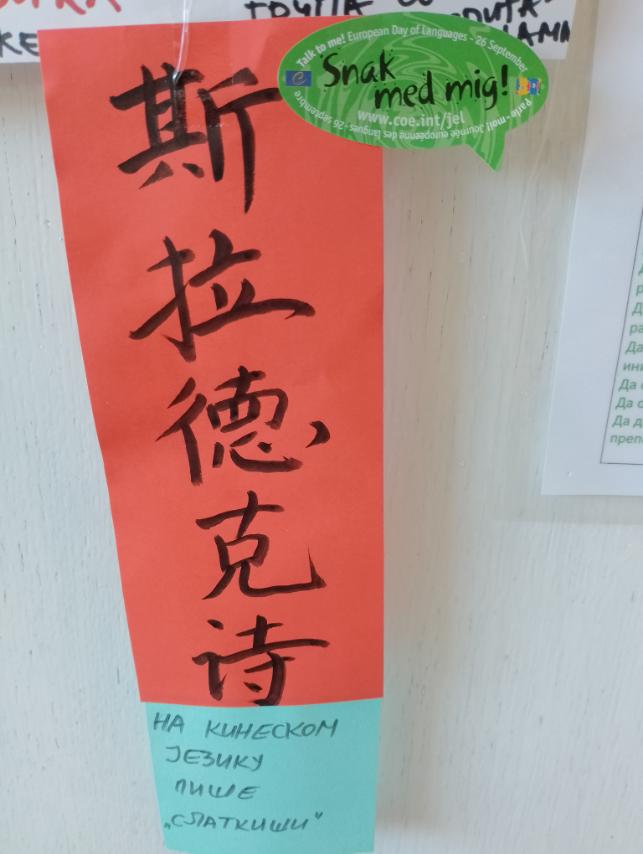 Talk to me! European Day of Languages - 26 September
Snak
med mig!
www.coe.int/jel
Parle-moi! Journée européenne des langues - 26 septembre
斯
拉
德
克
诗
НА КИНЕСКОМ
ЈЕЗИКУ
ПИШЕ
„СЛАТКИШИ"
Да
Да
Да
Да о
Да д